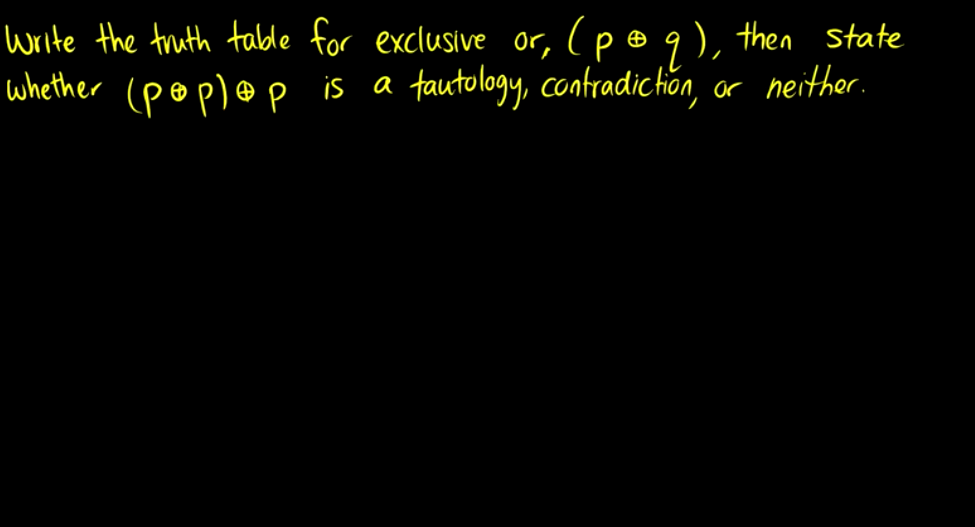 Write the truth table for exclusive or, (p ⊕ q), then state
whether (p ⊕ p) ⊕ p is a tautology, contradiction, or neither.